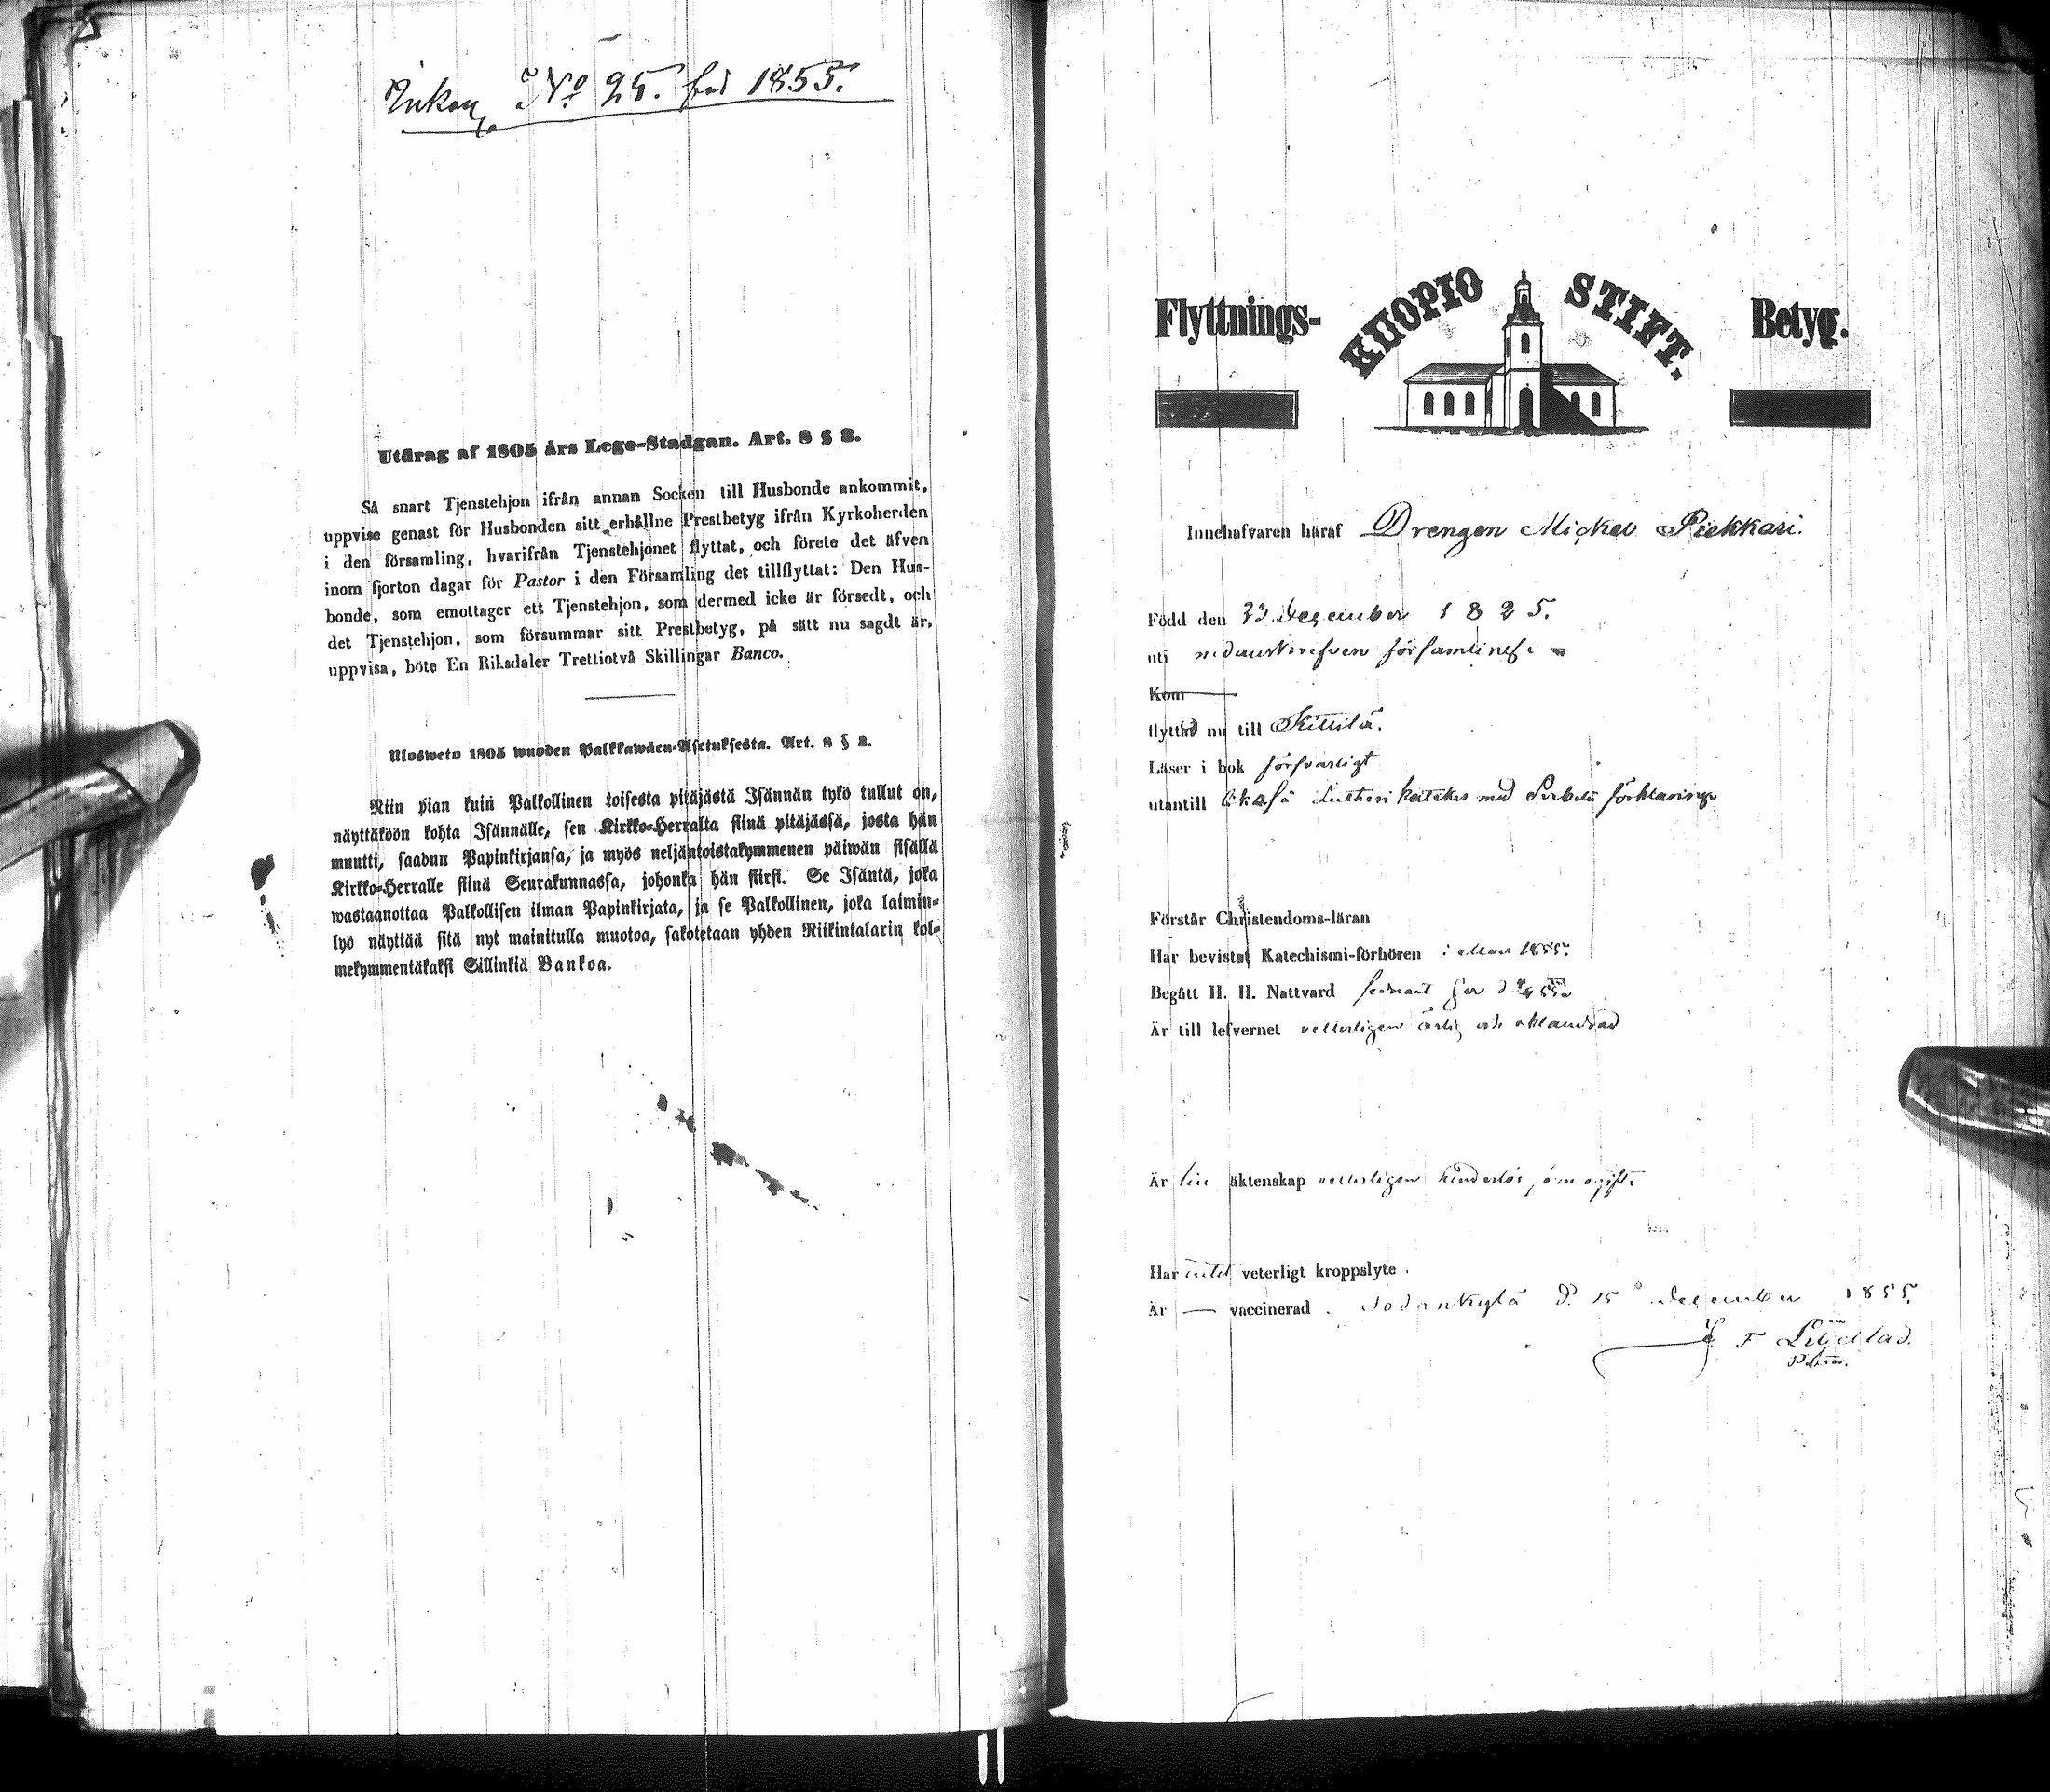 Inkom No 25. för 1855.
Utdrag af 1805 års Lego-Stadgan. Art. 8 § 2.
Så snart Tjenstehjon ifrån annan Socken till Husbonde ankommit,
uppvise genast för Husbonden sitt erhållne Prestbetyg ifrån Kyrkoherden
i den församling, hvarifrån Tjenstehjonet flyttat, och förete det äfven
inom fjorton dagar för Pastor i den Församling det tillflyttat: Den Hus-
bonde, som emottager ett Tjenstehjon, som dermed icke är försedt, och
det Tjenstehjon, som försummar sitt Prestbetyg, på sätt nu sagdt är,
uppvisa, böte En Riksdaler Trettiotvå Skillingar Banco.
Ulosweto 1805 wuoden Palkkawäen-Asetuksesta. Art. 8 § 2.
Niin pian kuin Palkollinen toisesta pitäjästä Isännän tykö tullut on,
näyttäköön kohta Isännälle, sen Kirkko-Herralta siinä pitäjässä, josta hän
muutti, saadun Papinkirjansa, ja myös neljäntoistakymmenen päiwän sisällä
Kirkko-Herralle siinä Seurakunnassa, johonka hän siirsi. Se Isäntä, joka
wastaanottaa Palkollisen ilman Papinkirjata, ja se Palkollinen, joka laimin-
lyö näyttää sitä nyt mainitulla muotoa, sakotetaan yhden Riikintalarin kol-
mekymmentäkaksi Sillinkiä Bankoa.
Flyttnings- KUOPIO STIFT. Betyg.
Innehafvaren häraf Drengen Mickel Piekkari.
Född den 23 December 1825.
uti nedanskrefven församling
Kom
flyttad nu till Kittilä.
Läser i bok försvarligt
utantill likaså Lutheri kateches med Svebelii förklaring
Förstår Christendoms-läran
Har bevistat Katechismi-förhören i Mars 1855.
Begått H. H. Nattvard senast
Är till lefvernet vetterligen ärlig och oklandrad
Är till äktenskap vetterligen hinderlös, som ogift.
Har intet veterligt kroppslyte.
Är — vaccinerad. Sodankylä d. 15 December 1855.
F Liljeblad.
Pastor.